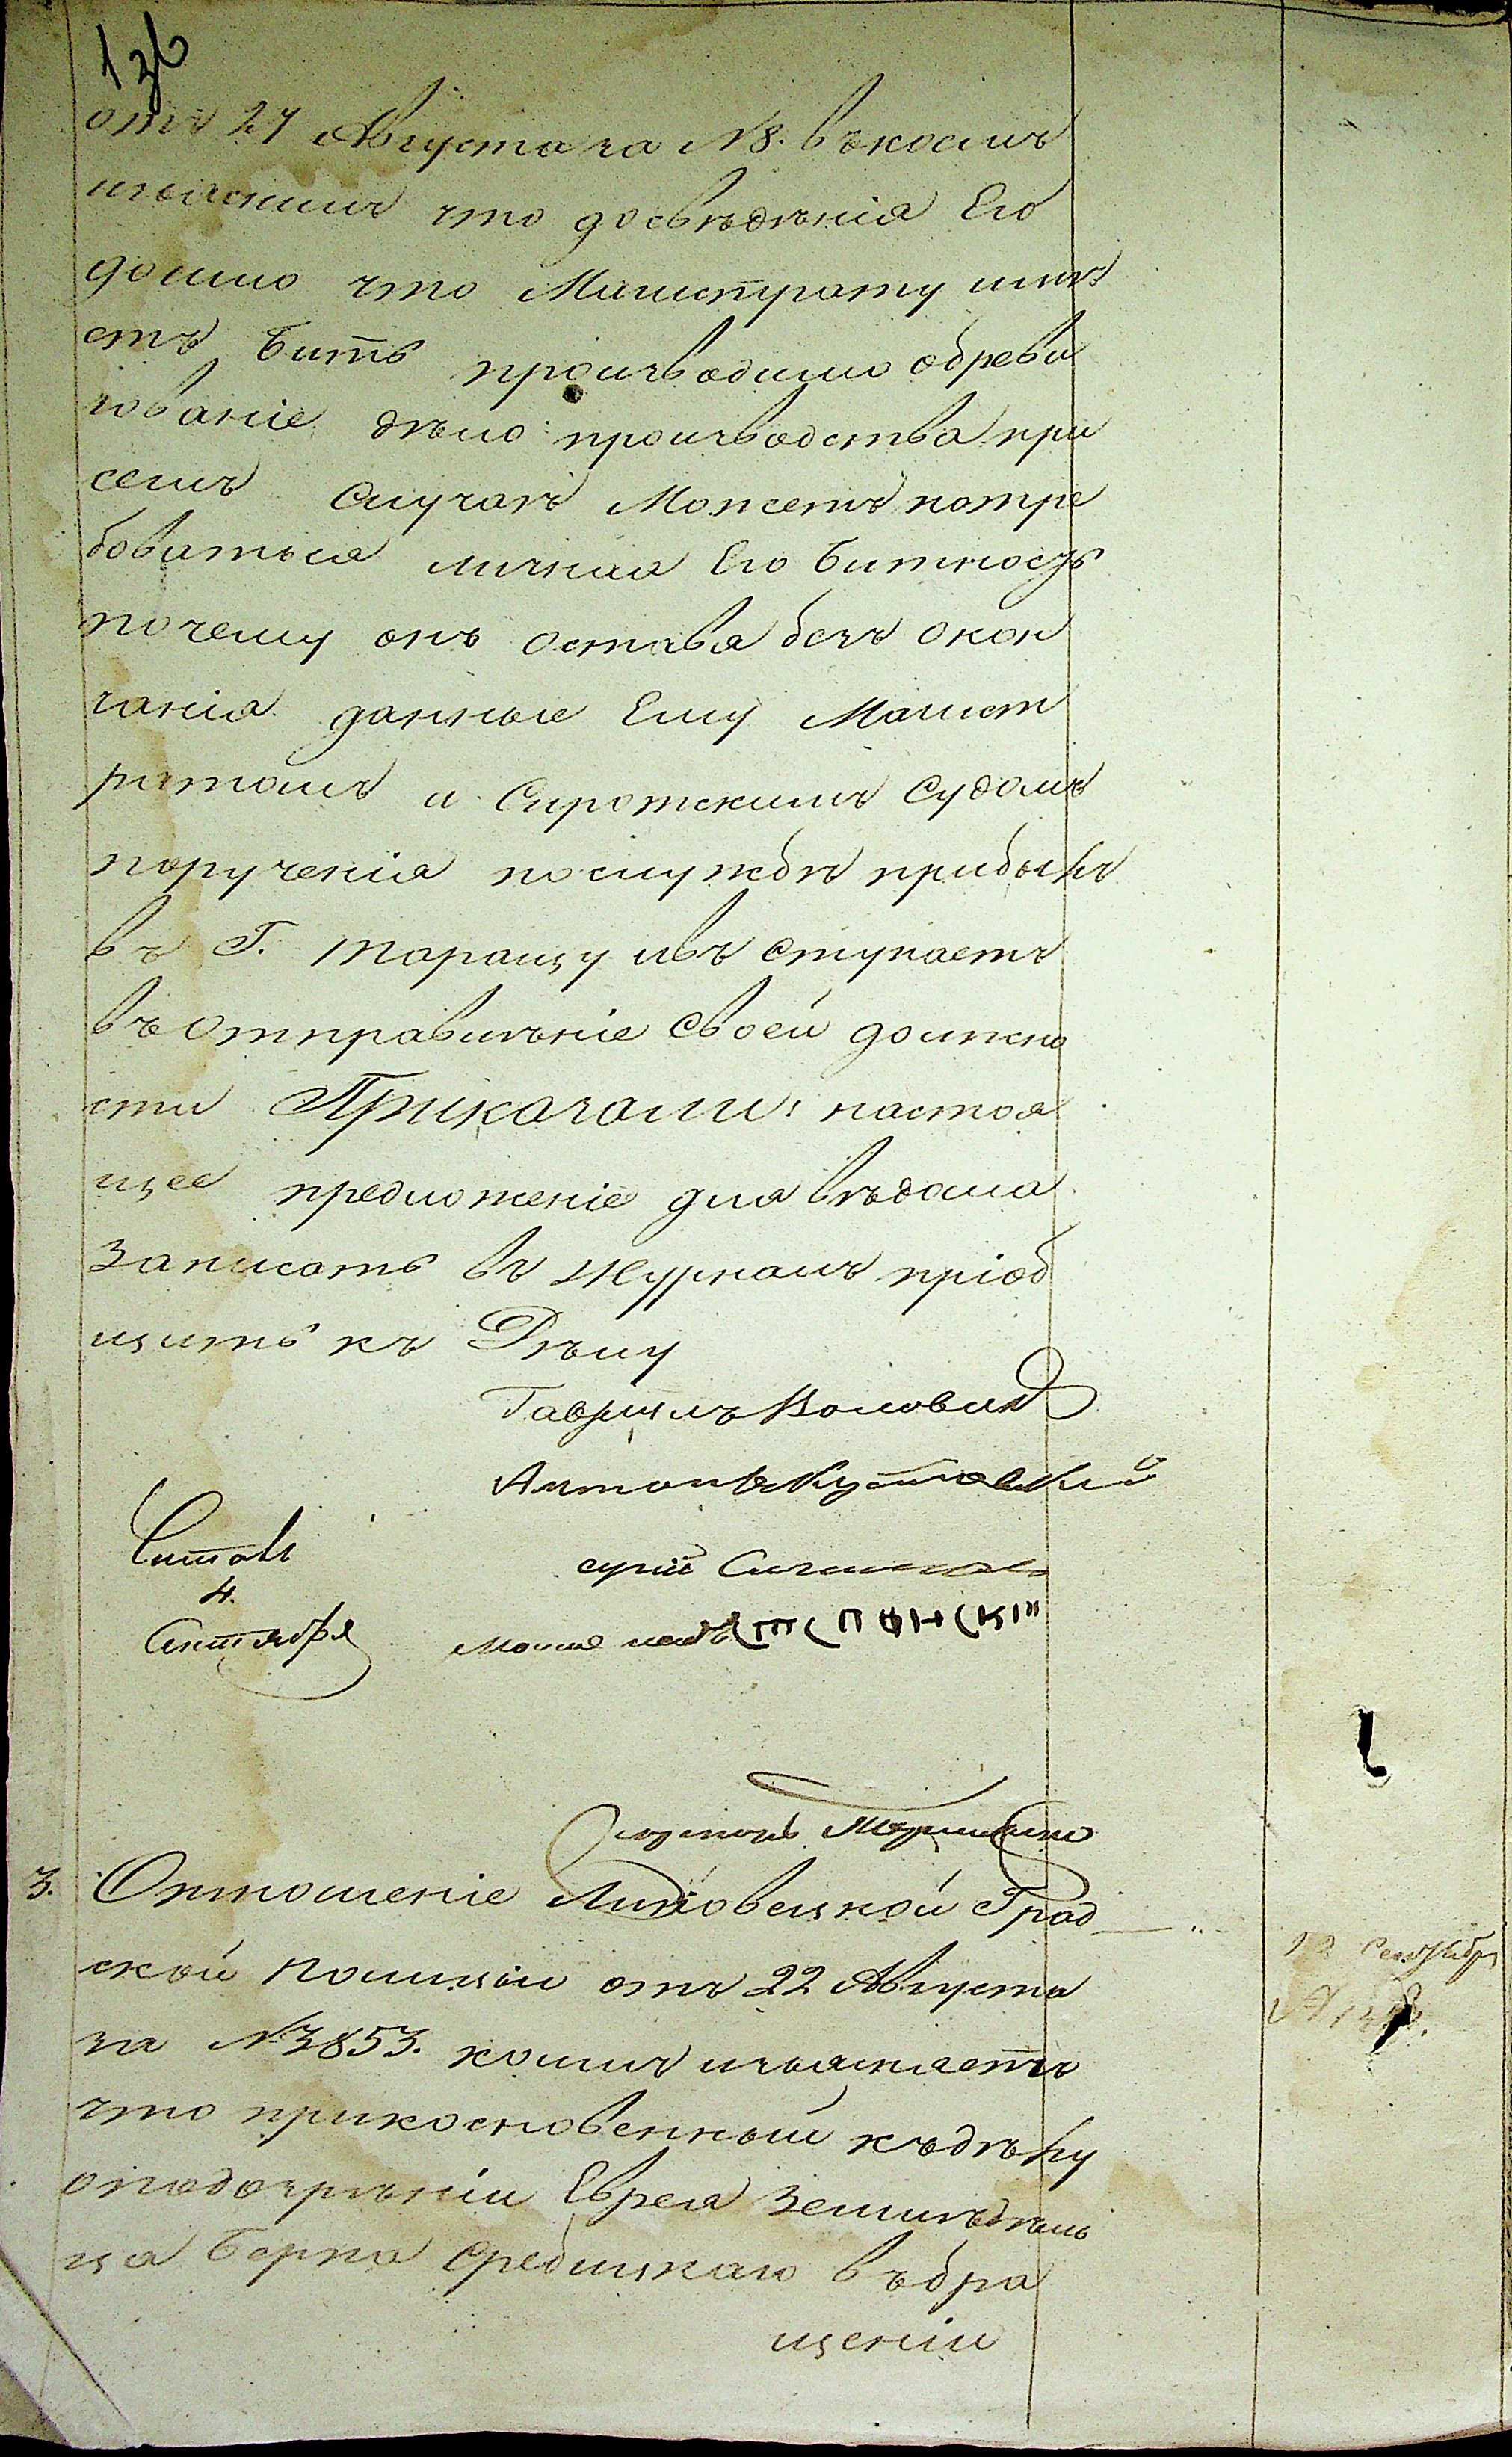 136
отъ 27 Августа за №8. въкоемъ
изъяснилъ что досвѣдѣнія Его
дошло что Магистрату имѣ:
етъ бить производимо обреви
зованіе дѣло: производства при
семъ случаѣ Можетъ потре
боваться личная Его битность
почему онъ оставя безъ окон
чанія данные Ему Магист
ратомъ и Сиротскимъ Судомъ
порученія послужбѣ прибылъ
въ Г. Таращу ивъ ступаетъ
въ отправилѣніе Своей должно
сти Приказали: настоя
щее предложеніе для вѣдома
записать въ журналъ пріоб
щить къ Дѣлу
Гавріилъ
Антонъ
Читалъ
4.
Сентября
Мошко
3. Отношеніе Липовецкой Град
ской полиціи отъ 22 Августа
за №3853. коимъ изъясняетъ
что прикосновенный къдѣлу
оподозрѣніи Еврея Землѣдѣль
ца Берка Средицкаго въбра
щеніи
12 Сентября